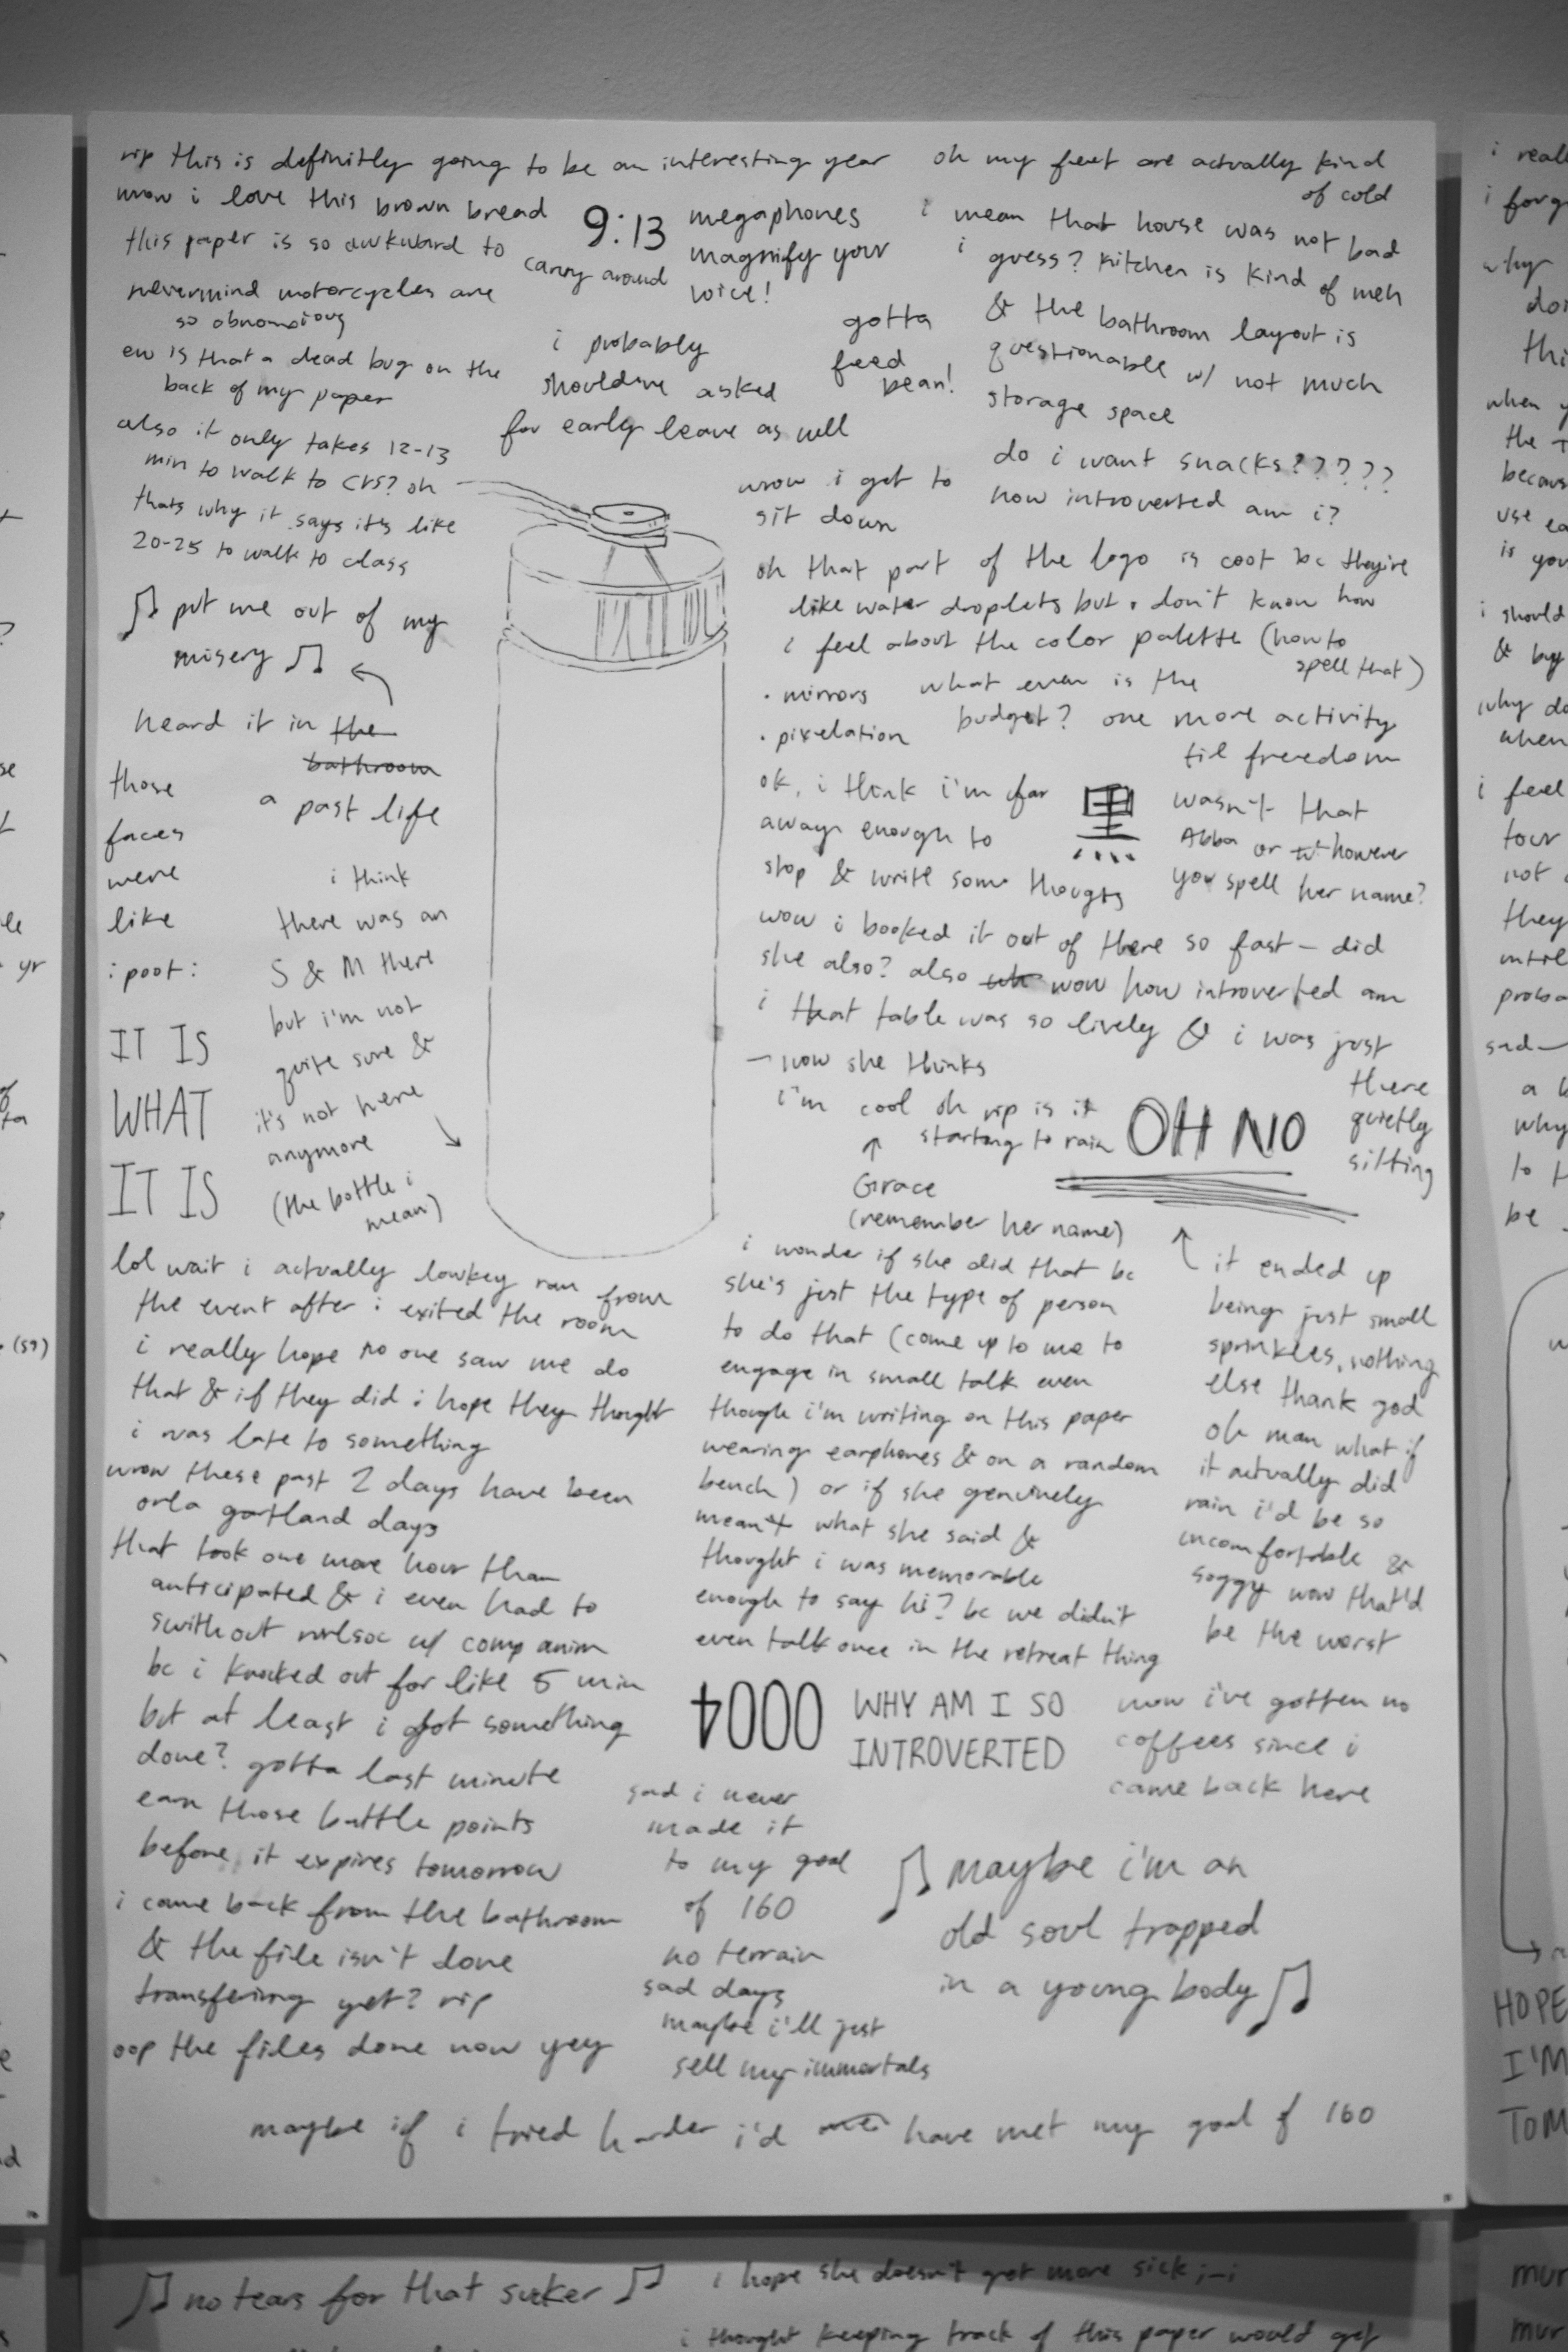 rip this is definitly going to be an interesting year
wow i love this brown bread
this paper is so awkward to
carry around
nevermind motorcycles are
so obnoxious
ew is that a dead bug on the
back of my paper
also it only takes 12-13
min to walk to CVS? oh
thats why it says it's like
20-25 to walk to class
♫ put me out of my
misery ♫
heard it in the
bathroom
a past life
those
faces
were
like
: poot :
i think
there was an
S & M there
but i'm not
quite sure &
it's not here
anymore
(the bottle i
mean)
IT IS
WHAT
IT IS
9:13
megaphones
magnify your
voice!
i probably
should've asked
for early leave as well
gotta
feed
bean!
oh my feet are actually kind
of cold
i mean that house was not bad
i guess? kitchen is kind of meh
& the bathroom layout is
questionable w/ not much
storage space
wow i get to
sit down
do i want snacks?????
how introverted am i?
oh that part of the logo is cool bc they're
like water droplets but i don't know how
i feel about the color palette (how to
spell that)
• mirrors
• pixelation
what even is the
budget? one more activity
til freedom
ok, i think i'm far
away enough to
stop & write some thougts
黒
wasn't that
Abba or however
you spell her name?
wow i booked it out of there so fast – did
she also? also wow how introverted am
i that table was so lively & i was just
there
quietly
sitting
– now she thinks
i'm cool oh rip is it
starting to rain
OH NO
↑
Grace
(remember her name)
i wonder if she did that bc
she's just the type of person
to do that (come up to me to
engage in small talk even
though i'm writing on this paper
wearing earphones & on a random
bench) or if she genuinely
meant what she said &
thought i was memorable
enough to say hi? bc we didn't
even talk once in the retreat thing
it ended up
being just small
sprinkles, nothing
else thank god
oh man what if
it actually did
rain i'd be so
uncomfortable &
soggy wow that'd
be the worst
lol wait i actually lowkey ran from
the event after i exited the room
i really hope no one saw me do
that & if they did i hope they thought
i was late to something
wow these past 2 days have been
orla gartland days
that took one more hour than
anticipated & i even had to
swith out nrlsoc w/ comp anim
bc i knocked out for like 5 min
but at least i got something
done? gotta last minute
earn those battle points
before it expires tomorrow
i came back from the bathroom
& the file isn't done
transfering yet? rip
oop the files done now yey
4000
WHY AM I SO
INTROVERTED
wow i've gotten no
coffees since i
came back here
sad i never
made it
to my goal
of 160
no terrain
sad days
maybe i'll just
sell my immortals
♫ maybe i'm an
old soul trapped
in a young body ♫
maybe if i tried harder i'd have met my goal of 160
♫ no tears for that sucker ♫
i hope she doesn't get more sick ;-;
i thought keeping track of this paper would get
i feel
HOPE
I'M
TOM